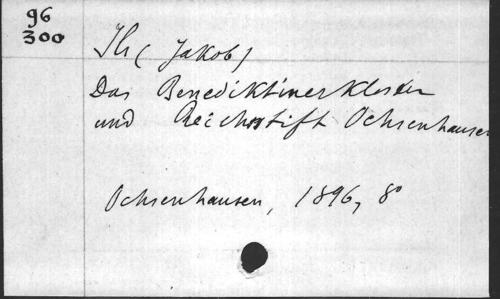 96
300
Ihr (Jakob)
Das Benediktinerkloster
und Reichsstift Ochsenhausen
Ochsenhausen, 1896, 8°